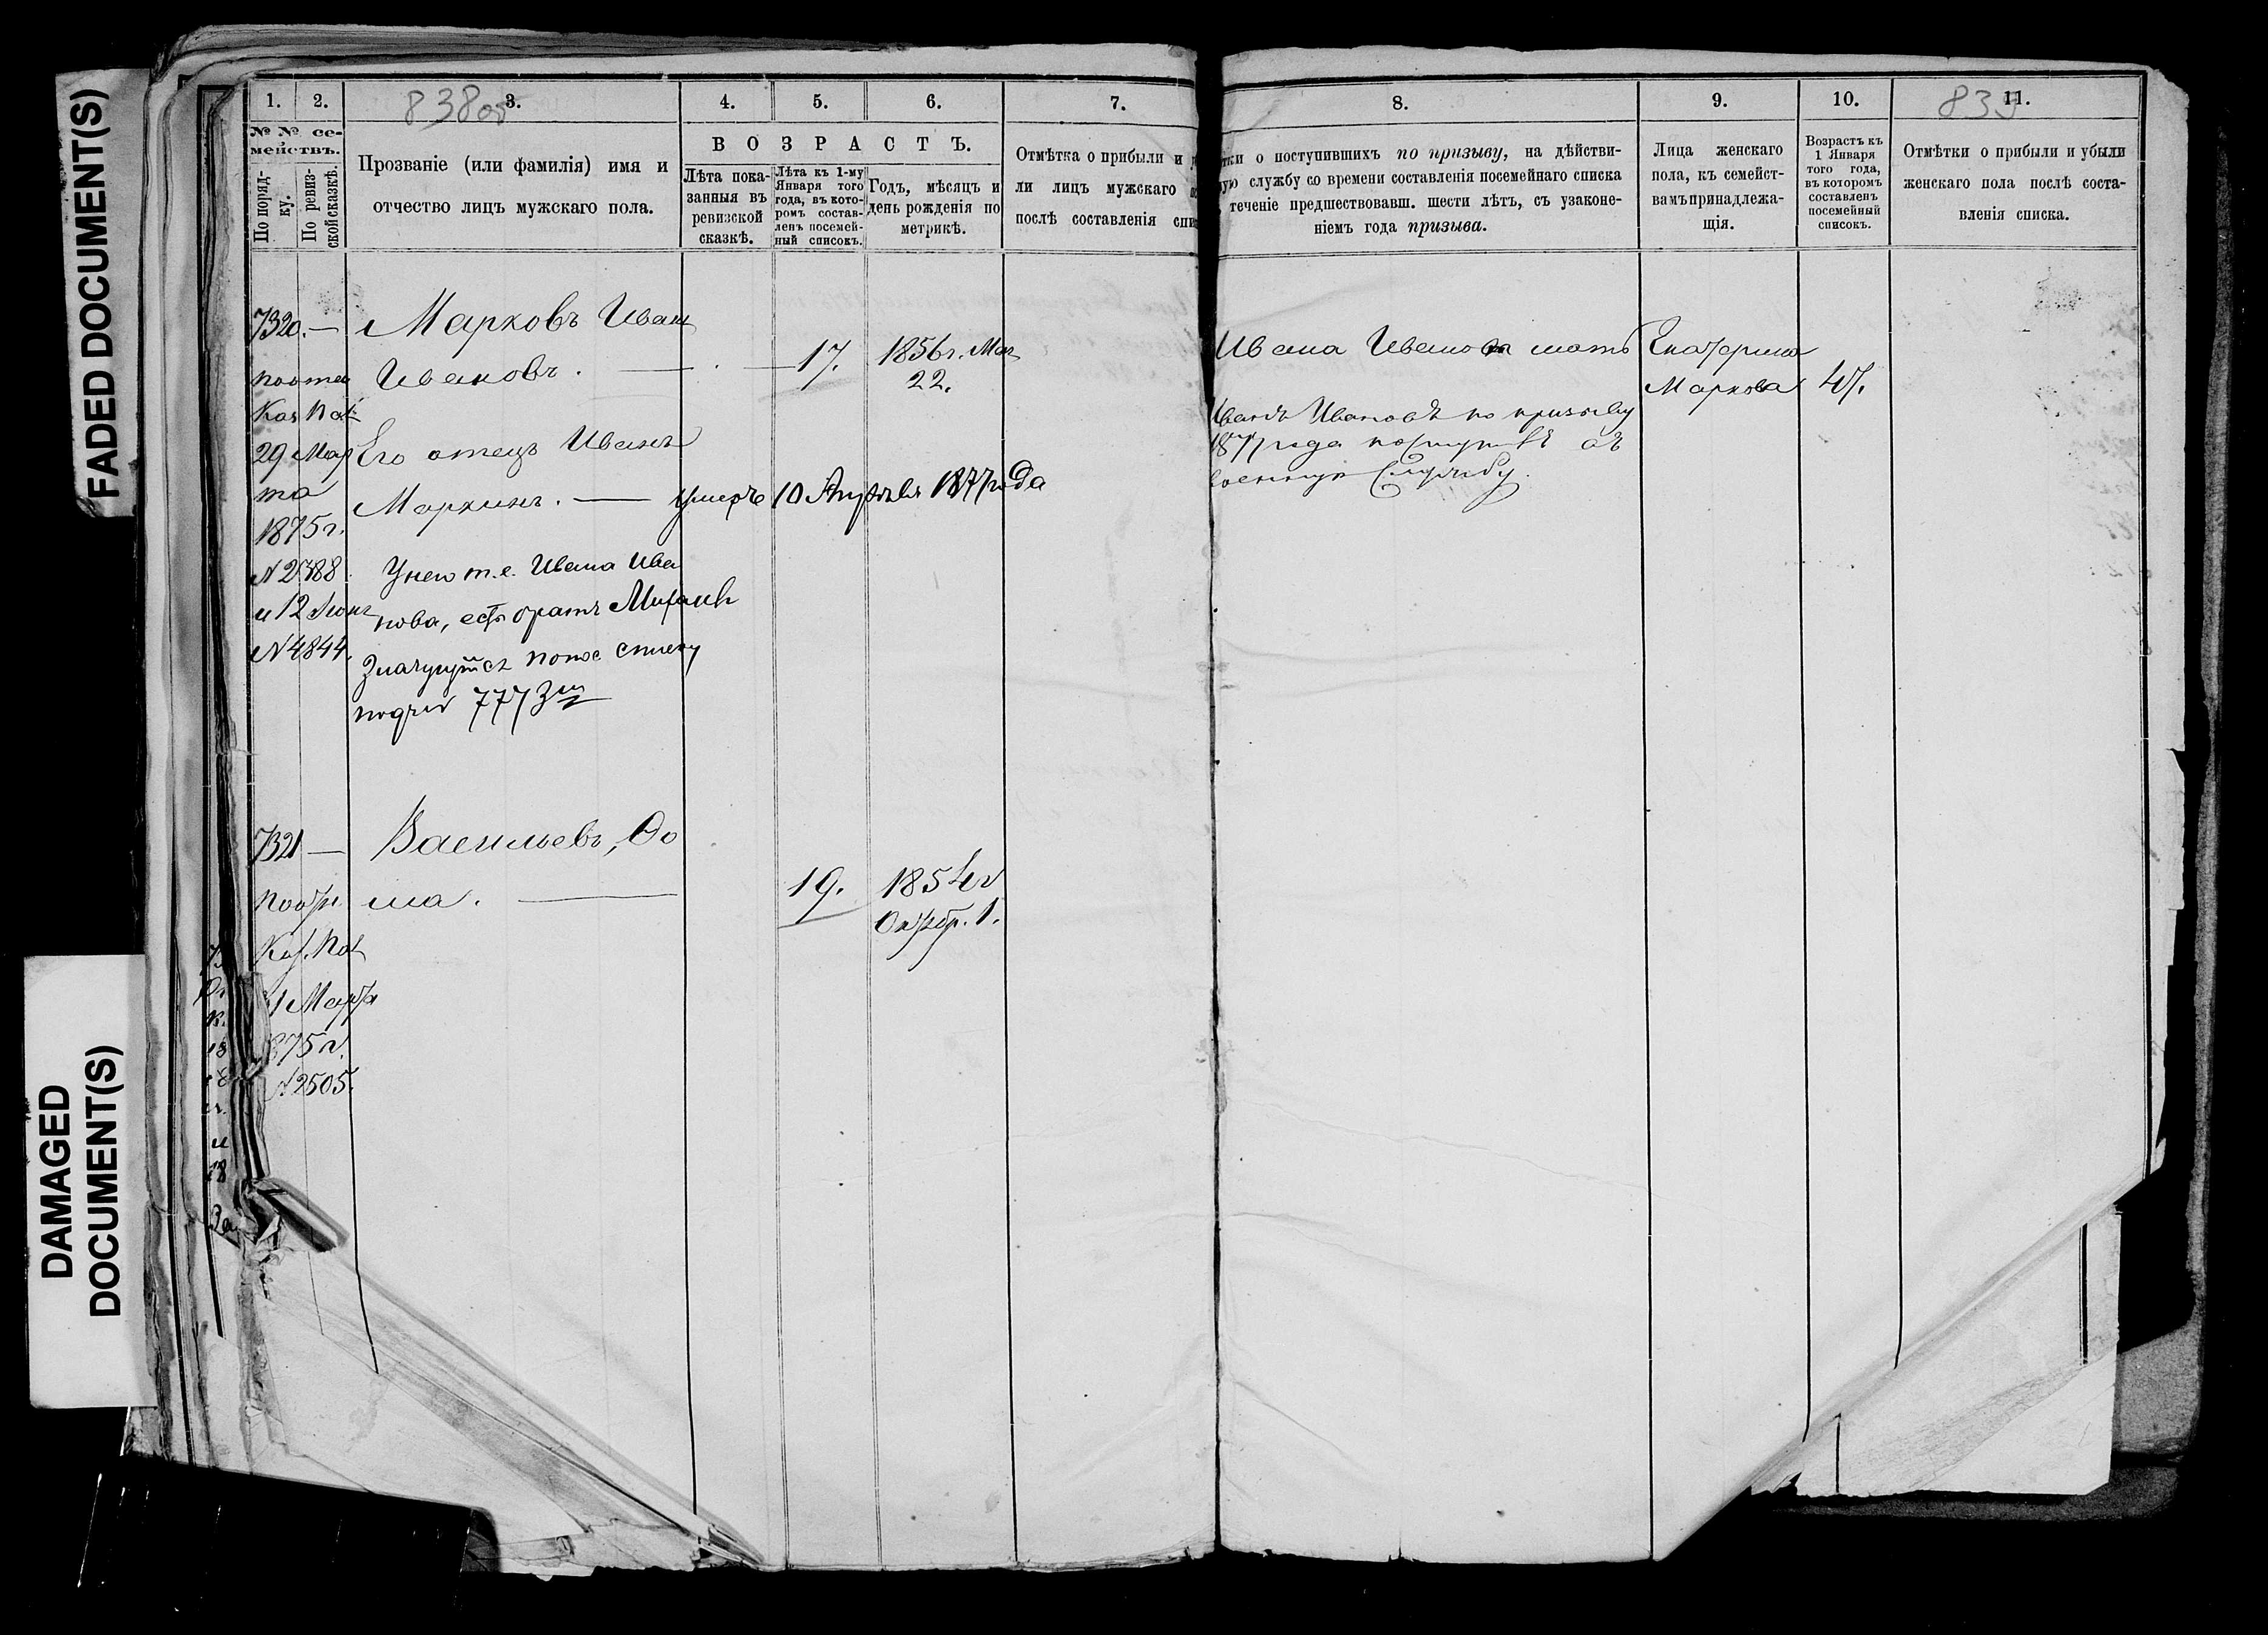 FADED DOCUMENT(S)
DAMAGED
DOCUMENT(S)
838об
1. 2. 3. 4. 5. 6. 7.
№ № се-
мействъ.
По поряд-
ку.
По ревиз-
ской сказкѣ.
Прозваніе (или фамилія) имя и
отчество лицъ мужскаго пола.
ВОЗРАСТЪ.
Лѣта пока-
занныя въ
ревизской
сказкѣ.
Лѣта къ 1-му
Января того
года, въ кото-
ромъ состав-
ленъ посемей-
ный списокъ.
Годъ, мѣсяцъ и
день рожденія по
метрикѣ.
Отмѣтка о прибыли и
ли лицъ мужскаго
послѣ составленія спи
7320. — Марковъ Иванъ
Ивановъ. — 17. 1856 г. Мая
22.
29 Мар
та
1875 г.
№ 2788
и 12 Іюня
№ 4844.
Его отецъ Иванъ
Маркинъ. — умеръ 10 Апрѣля 1877 года
У него т.е. Ивана Ива
нова, есть братъ Михаилъ
подъ № 7773
7321 — Васильевъ, Ѳо
ма. — 19. 1854 г
Октябр. 1.
1 Марта
875 г.
№ 2505.
8. 9. 10. 11.
839
тки о поступившихъ по призыву, на дѣйстви-
ую службу со времени составленія посемейнаго списка
теченіе предшествовавш. шести лѣтъ, съ узаконе-
ніемъ года призыва.
Лица женскаго
пола, къ семейст-
вамъ принадлежа-
щія.
Возрастъ къ
1 Января
того года,
въ которомъ
составленъ
посемейный
списокъ.
Отмѣтки о прибыли и убыли
женскаго пола послѣ соста-
вленія списка.
Ивана Иванова мать Екатерина
Маркова 47.
Иванъ Ивановъ по призыву
1877 года поступилъ въ
военную службу.